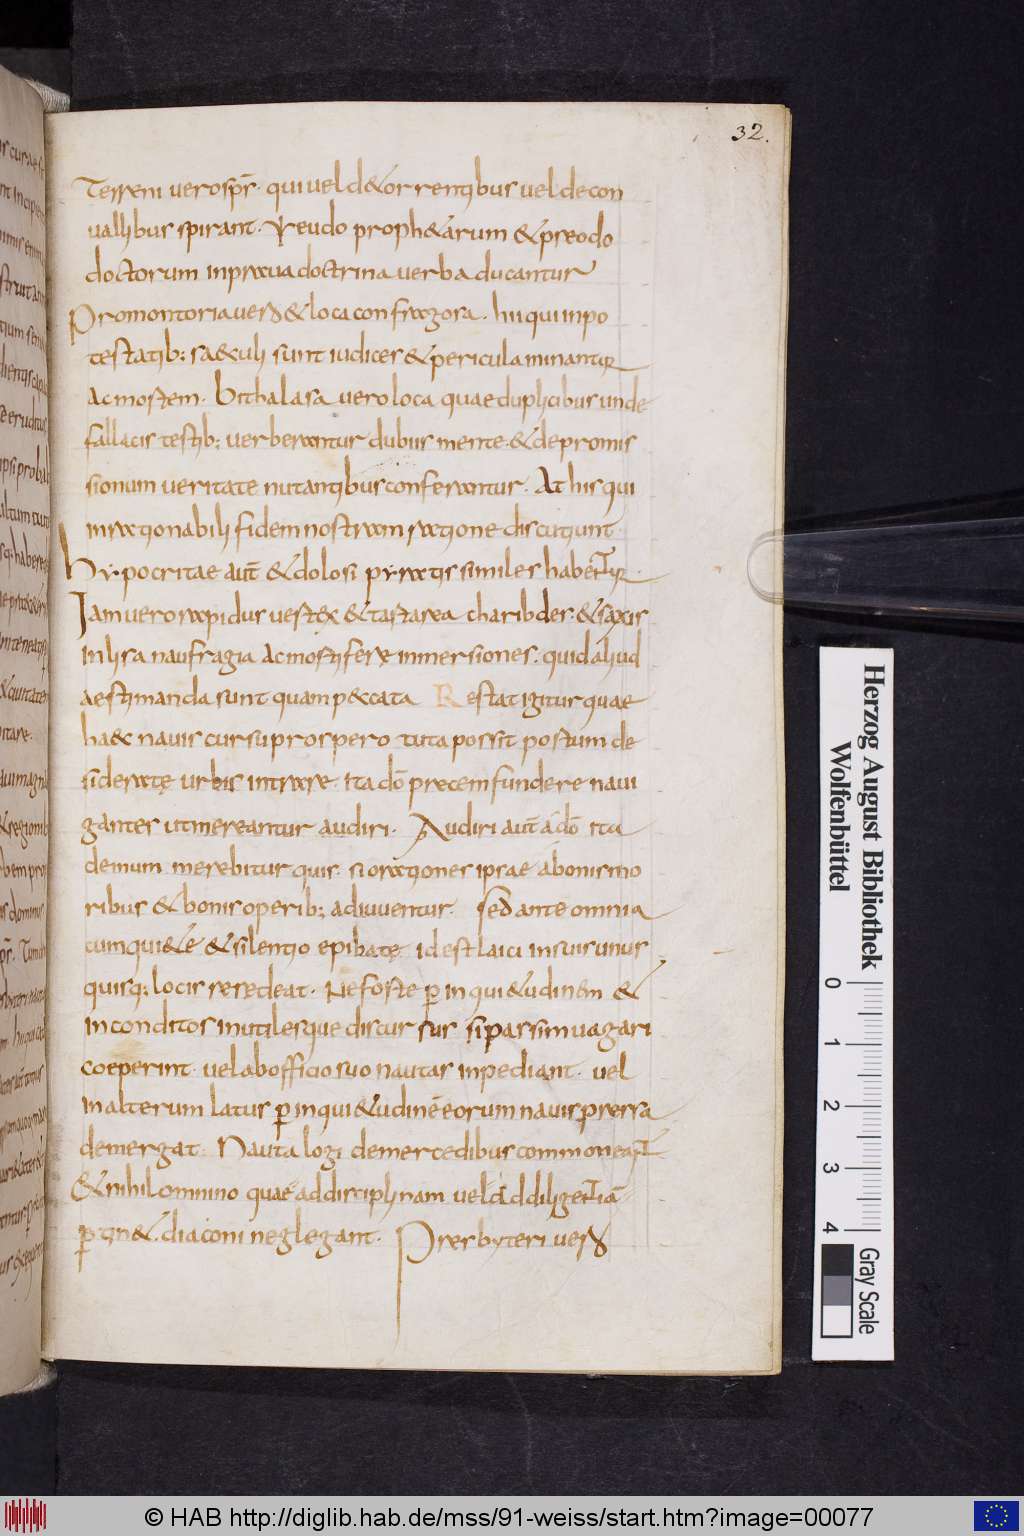 32.
Terreni vero spr̄. qui vel de torrentibus vel de con
vallibus spirant. Pseudo prophetarum & pseodo
doctorum in praeva doctrina verba ducantur
Promontoria vero & loca confragosa. hii qui in po
testatib; saeculi sunt iudices & pericula minantur
ac mortem. Bithalasa vero loca quae duplicibus unde
fallacis testib; verberantur dubiis mente. & de promis
sionum veritate nutantibus conferantur. At his qui
inrationabili fidem nostram ratione discutiunt.
Hypocritae aut̄ & dolosi pyratis similes habentur.
Iam vero rapidus vertex & tartarea charibdes. & saxis
inlisa naufragia ac mortiferae inmersiones. quid aliud
aestimanda sunt quam peccata Restat igitur quae
haec navis cursu prospero tuta possit portum de
siderate urbis intrare. ita dō precem fundere navi
gantes ut mereantur audiri. Audiri aut̄ a dō ita
demum merebitur quis. si orationes ipsae a bonis mo
ribus & bonis operib; adiuventur. Sed ante omnia
cum quiete & silentio epibate id est laici in suis unus
quisq; locis resedeat. Ne forte p̱ inquietudinem &
inconditos inutilesque discursus si passim vagari
coeperint. vel ab officio suo nautas inpediant. vel
in alterum latus p̱ inquietudinē eorum navis pressa
demergat. Nautalogi de mercedibus commoneant
& nihil omnino quae ad disciplinam vel ad diligentiā
p̱tin&. diaconi neglegant. Presbyteri vero
Herzog August Bibliothek
Wolfenbüttel
0 1 2 3 4
Gray Scale
© HAB http://diglib.hab.de/mss/91-weiss/start.htm?image=00077